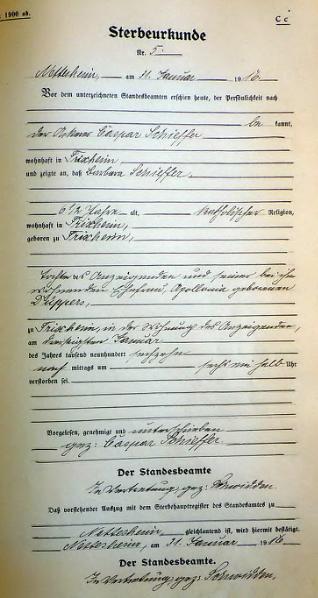 1900 ab.
C c
Sterbeurkunde
Nr. 5
Nettersheim, am 31. Januar 1916
Vor dem unterzeichneten Standesbeamten erschien heute, der Persönlichkeit nach
be kannt,
der Ackerer Caspar Schieffer,
wohnhaft in Frixheim,
und zeigte an, daß Barbara Schieffer,
6 1/2 Jahre alt, katholischer Religion,
wohnhaft in Frixheim,
geboren zu Frixheim,
Tochter des Anzeigenden und seiner bei ihm
wohnenden Ehefrau, Apollonia geborenen
Düppers,
zu Frixheim, in der Wohnung des Anzeigenden,
am dreißigsten Januar
des Jahres tausend neunhundert sechzehn
nach mittags um sechs ein halb Uhr
verstorben sei.
Vorgelesen, genehmigt und unterschrieben
gez: Caspar Schieffer
Der Standesbeamte
In Vertretung, gez:
Daß vorstehender Auszug mit dem Sterbehauptregister des Standesamtes zu
Nettersheim, gleichlautend ist, wird hiermit bestätigt.
Nettersheim, am 31. Januar 1916
Der Standesbeamte.
In Vertretung, gez: